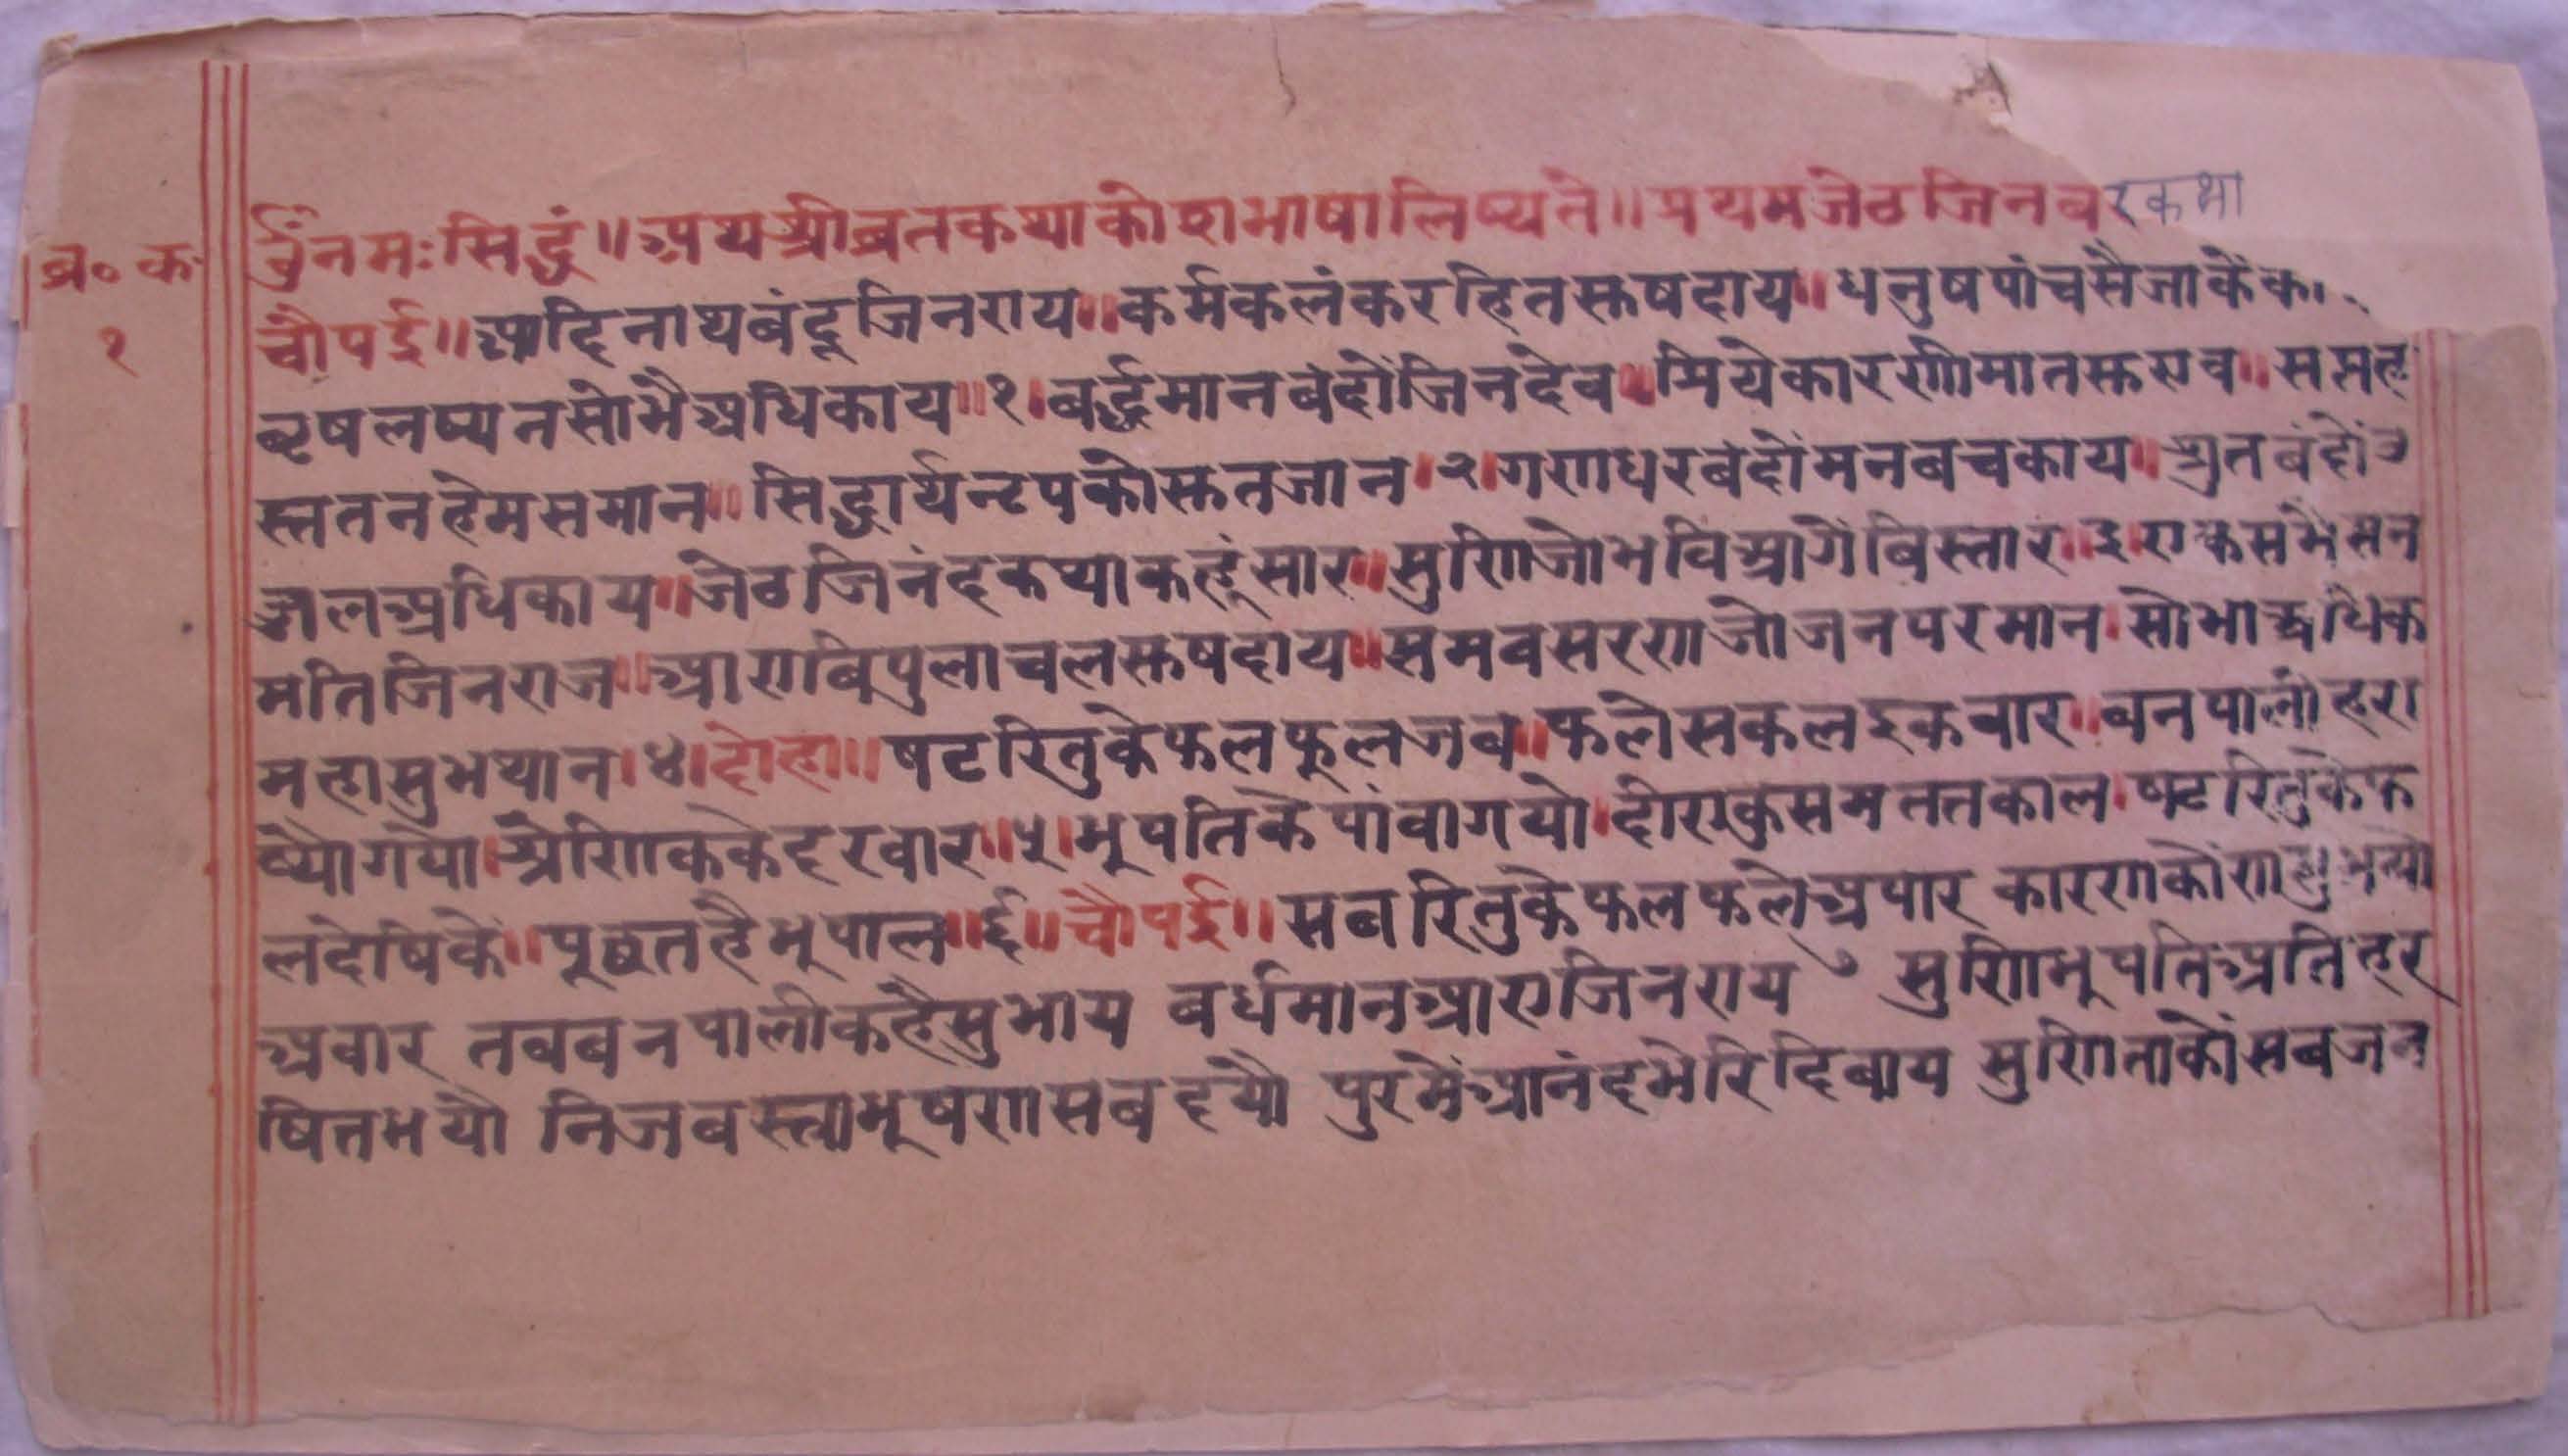 ॐनमःसिद्धं॥अथश्रीव्रतकथाकोशभाषालिष्यते॥प्रथमजेठजिनवरकथा
व्र० क
१
चौपई॥आदिनाथबंदूजिनराय॥कर्मकलंकरहितसुषदाय॥धनुषपांचसैजाकेंका
वृषलष्यनसोभैअधिकाय॥१॥बर्द्धमानबंदोंजिनदेव॥प्रियेकारणीमातसुएव॥सप्तह
स्ततनहेमसमान॥सिद्धार्थनृपकोसुतजान॥२॥गणधरबंदोंमनबचकाय॥श्रुतबंदों
ज्जलअधिकाय॥जेठजिनंदकथाकहूंसार॥सुणिजोभविआगैंबिस्तार॥३॥एकसमैसन
मतिजिनराज॥आएबिपुलाचलसुषदाय॥समवसरणजोजनपरमान॥सोभाअधिक
महासुभथान॥४॥दोहा॥षटरितुकेफलफूलजब॥फलेसकलइकबार॥बनपालीहरा
ष्योगयो।श्रेणिककेदरबार॥५॥भूपतिकेपांवागयो।दीएकुसमततकाल॥षटरितुकेफ
लदेषिकें॥पूछतहैभूपाल॥६॥चौपई॥सबरितुकेफलफलेअपार कारणकोंणसुभयो
अबार तबबनपालीकहैसुभाय बर्धमानआएजिनराय ७ सुणिभूपतिअतिहर
षितभयो निजबस्त्राभूषणसबदयो पुरमेंआनंदभेरिदिबाय सुणिताकोंसबजन